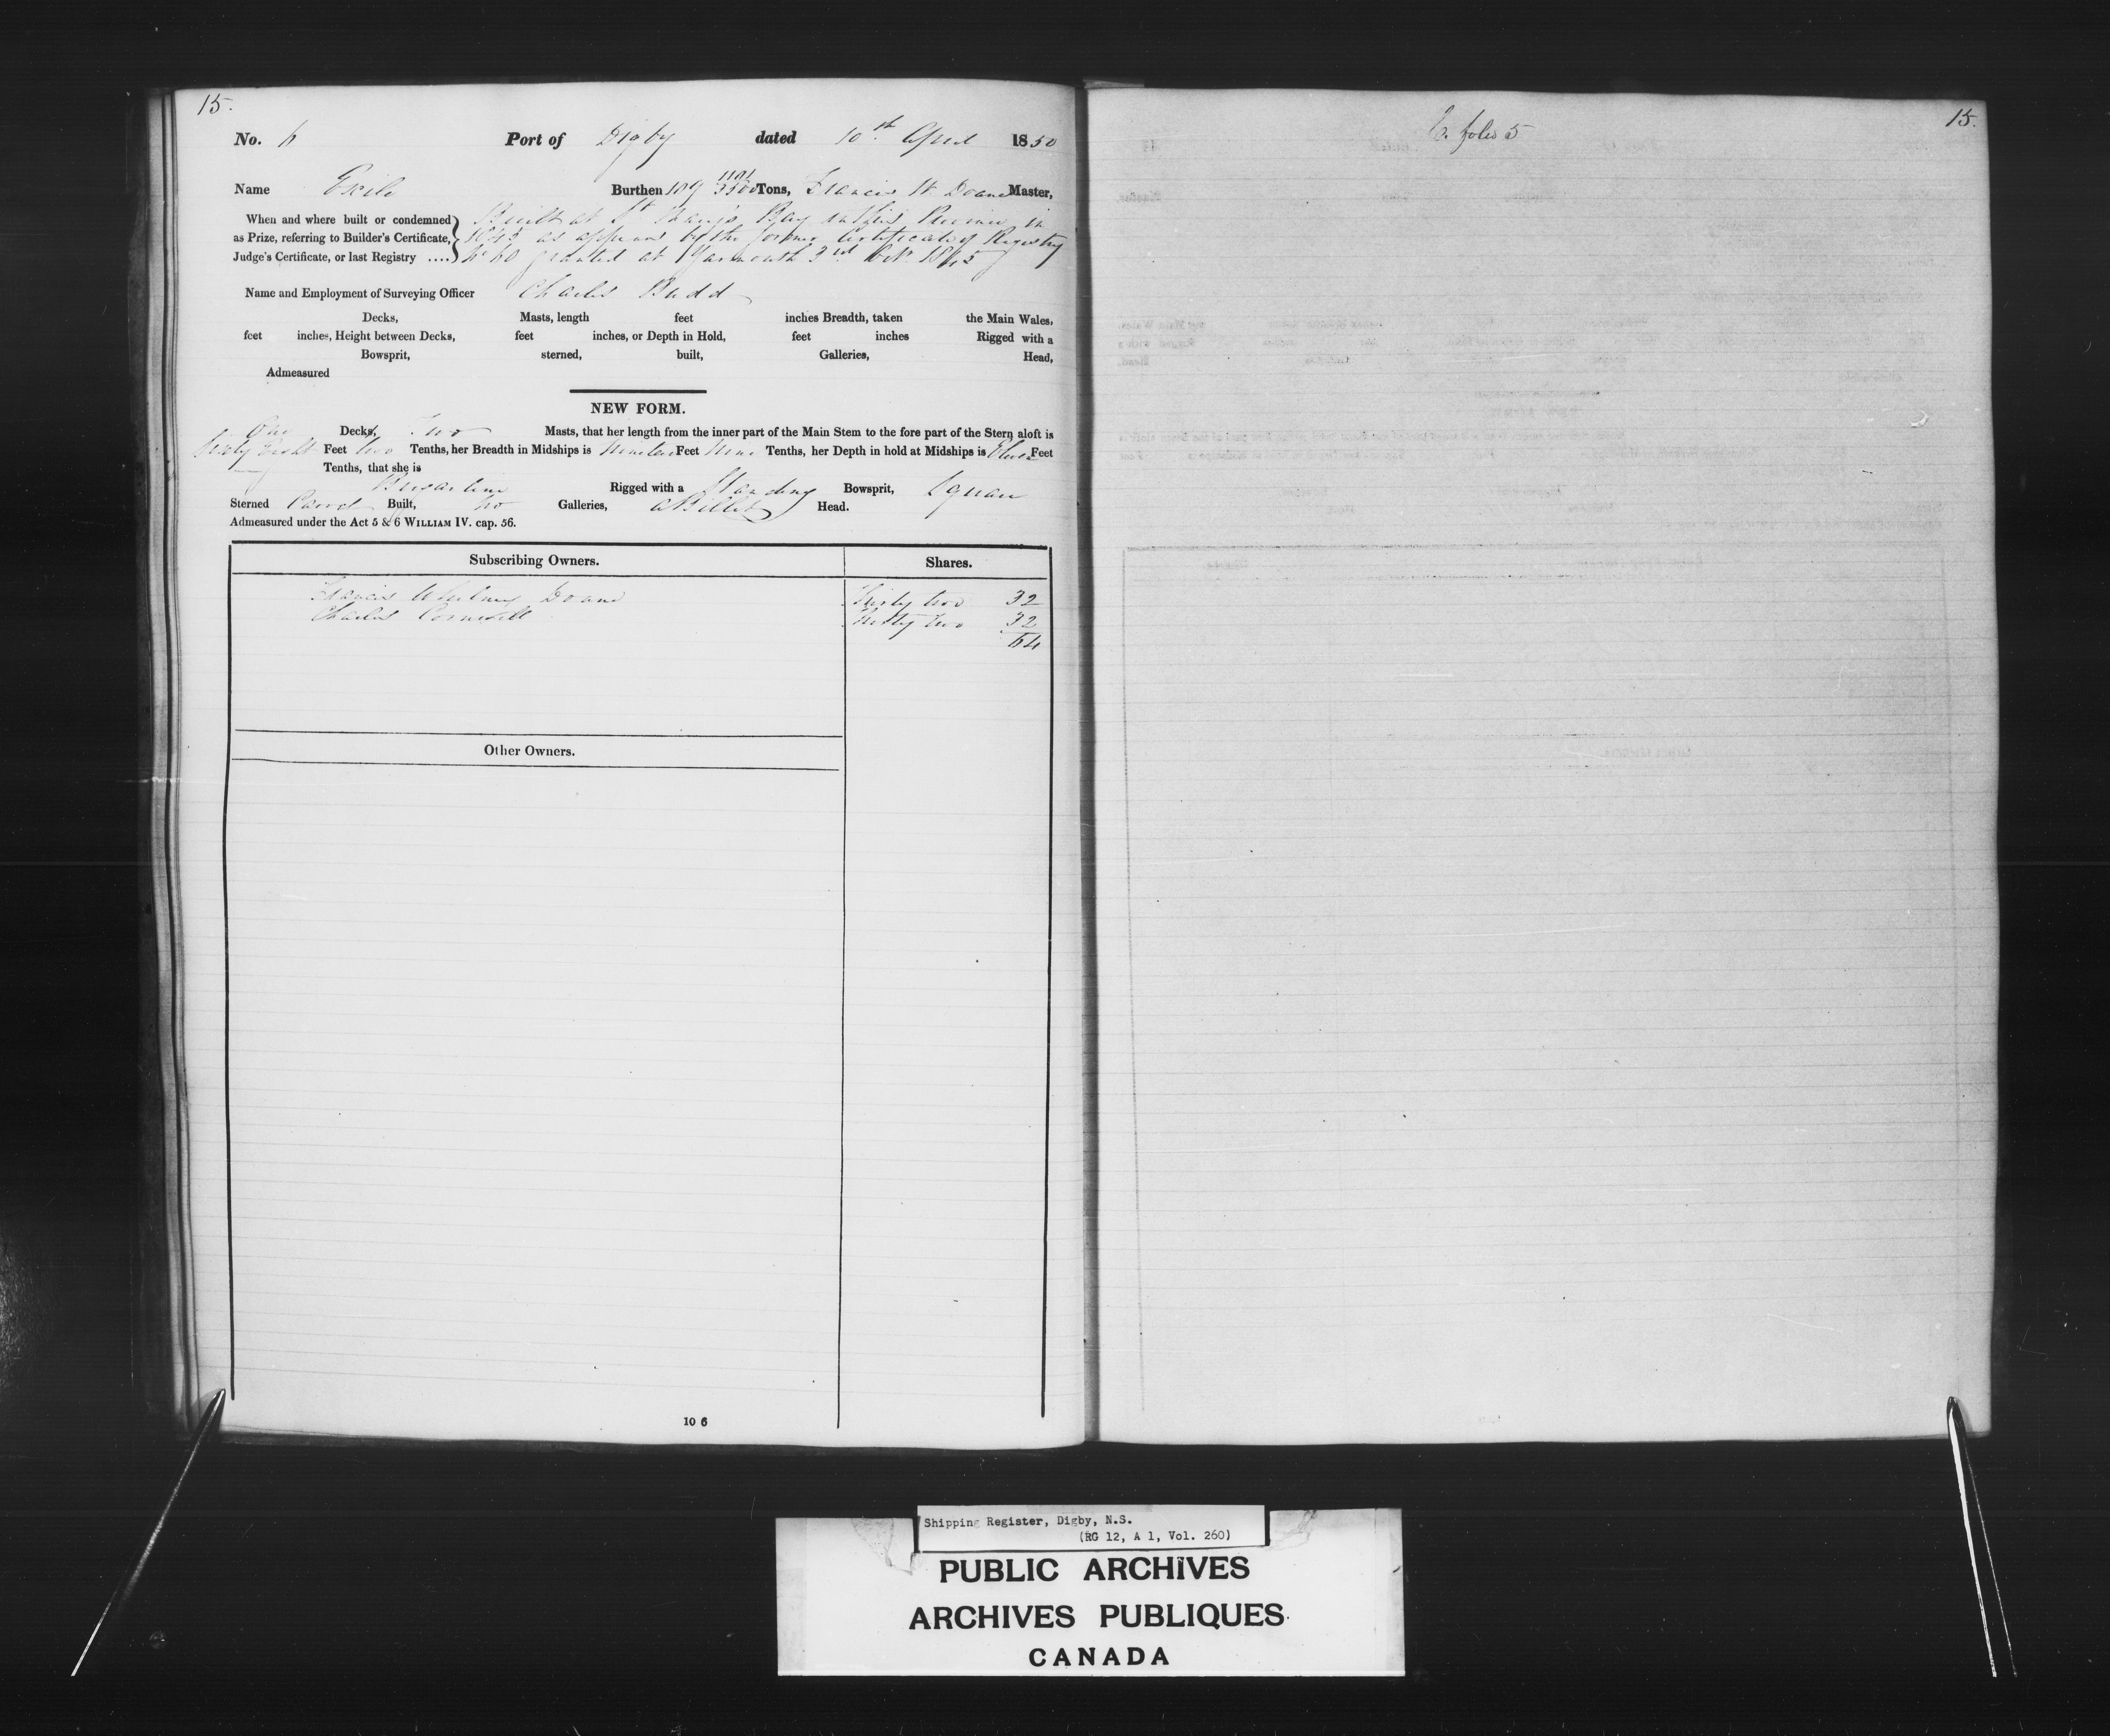 15.
No. 6 Port of Digby dated 10th April 1850
Name Exile Burthen 109 1101/3500 Tons, Francis W. Doane Master,
When and where built or condemned
as Prize, referring to Builder's Certificate,
Judge's Certificate, or last Registry ....
Built at St Mary's Bay in this Province in
1845 as appears by the former Certificate of Registry
No 60 granted at Yarmouth 3rd Octr 1845
Name and Employment of Surveying Officer Charles Budd
Decks, Masts, length feet inches Breadth, taken the Main Wales,
feet inches, Height between Decks, feet inches, or Depth in Hold, feet inches Rigged with a
Bowsprit, sterned, built, Galleries, Head,
Admeasured
NEW FORM.
One Decks, Two Masts, that her length from the inner part of the Main Stem to the fore part of the Stern aloft is
Sixty Eight Feet two Tenths, her Breadth in Midships is Nineteen Feet Nine Tenths, her Depth in hold at Midships is Eleven Feet
Tenths, that she is
Brigantine Rigged with a Standing Bowsprit, Square
Sterned Carvel Built, No Galleries, a Billet Head.
Admeasured under the Act 5 & 6 WILLIAM IV. cap. 56.
Subscribing Owners. Shares.
Francis Whitney Doane Thirty two 32
Charles Cornwell Thirty two 32
64
Other Owners.
10 6
E. folio 5
15.
Shipping Register, Digby, N.S.
(RG 12, A 1, Vol. 260)
PUBLIC ARCHIVES
ARCHIVES PUBLIQUES
CANADA